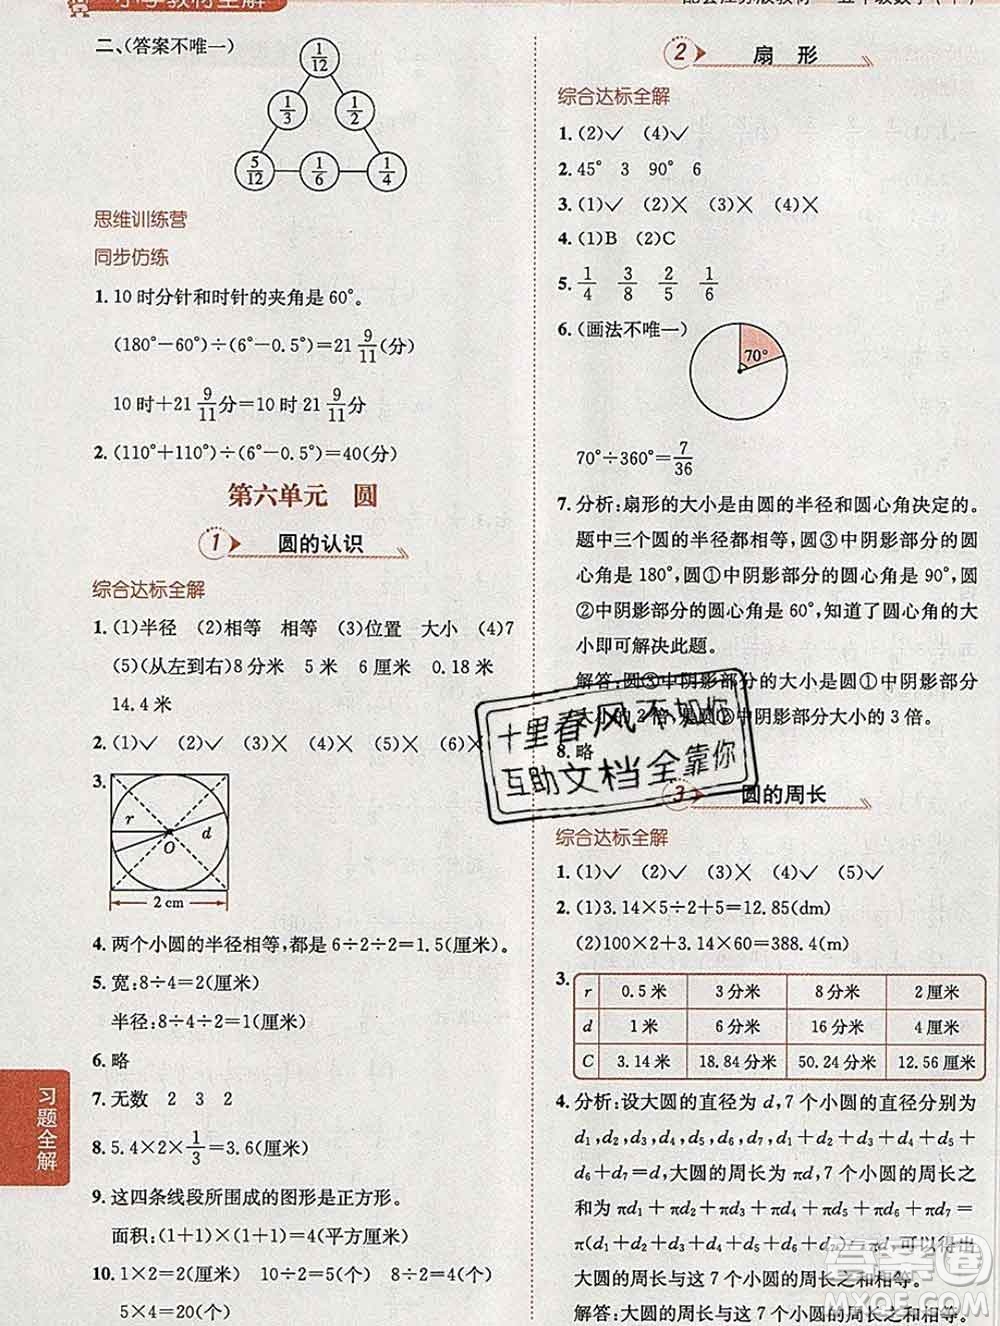 小学教材全解
二、(答案不唯一)
1/12
1/3 1/2
5/12 1/6 1/4
思维训练营
同步仿练
1. 10时分针和时针的夹角是60°。
(180°-60°)÷(6°-0.5°)=21 9/11(分)
10时+21 9/11分=10时21 9/11分
2. (110°+110°)÷(6°-0.5°)=40(分)
第六单元 圆
1 圆的认识
综合达标全解
1. (1)半径 (2)相等 相等 (3)位置 大小 (4)7
(5)(从左到右)8分米 5米 6厘米 0.18米
14.4米
2. (1)✓ (2)✓ (3)✓ (4)✓ (5)✓ (6)✕
3.
r d
O
2 cm
4. 两个小圆的半径相等,都是6÷2÷2=1.5(厘米)。
5. 宽:8÷4=2(厘米)
半径:8÷4÷2=1(厘米)
6. 略
7. 无数 2 3 2
8. 5.4×2×1/3=3.6(厘米)
9. 这四条线段所围成的图形是正方形。
面积:(1+1)×(1+1)=4(平方厘米)
10. 1×2=2(厘米) 10÷2=5(个) 8÷2=4(个)
5×4=20(个)
习题全解
2 扇 形
综合达标全解
1. (2)✓ (4)✓
2. 45° 3 90° 6
3. (1)✓ (2)✕ (3)✕ (4)✕
4. (1)B (2)C
5. 1/4 3/8 2/5 1/6
6. (画法不唯一)
70°
70°÷360°=7/36
7. 分析:扇形的大小是由圆的半径和圆心角决定的。
题中三个圆的半径都相等,圆③中阴影部分的圆
心角是180°,圆①中阴影部分的圆心角是90°,圆
②中阴影部分的圆心角是60°,知道了圆心角的大
小即可解决此题。
解答:圆③中阴影部分的大小是圆①中阴影部分
大小的2倍,是圆②中阴影部分大小的3倍。
8. 略
十里春风不如你
互助文档全靠你
3 圆的周长
综合达标全解
1. (1)✓ (2)✓ (3)✓ (4)✕ (5)✓
2. (1)3.14×5÷2+5=12.85(dm)
(2)100×2+3.14×60=388.4(m)
3.
r 0.5米 3分米 8分米 2厘米
d 1米 6分米 16分米 4厘米
C 3.14米 18.84分米 50.24分米 12.56厘米
4. 分析:设大圆的直径为d,7个小圆的直径分别为
d₁,d₂,d₃,d₄,d₅,d₆,d₇,且d₁+d₂+d₃+d₄+d₅+
d₆+d₇=d,大圆的周长为πd,7个小圆的周长之
和为πd₁+πd₂+πd₃+πd₄+πd₅+πd₆+πd₇=
π(d₁+d₂+d₃+d₄+d₅+d₆+d₇)=πd,可以得出
大圆的周长与这7个小圆的周长之和相等。
解答:大圆的周长与这7个小圆的周长之和相等。
MXQE.COM